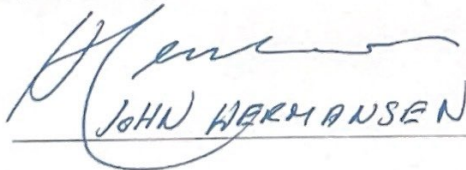 JOHN HERMANSEN